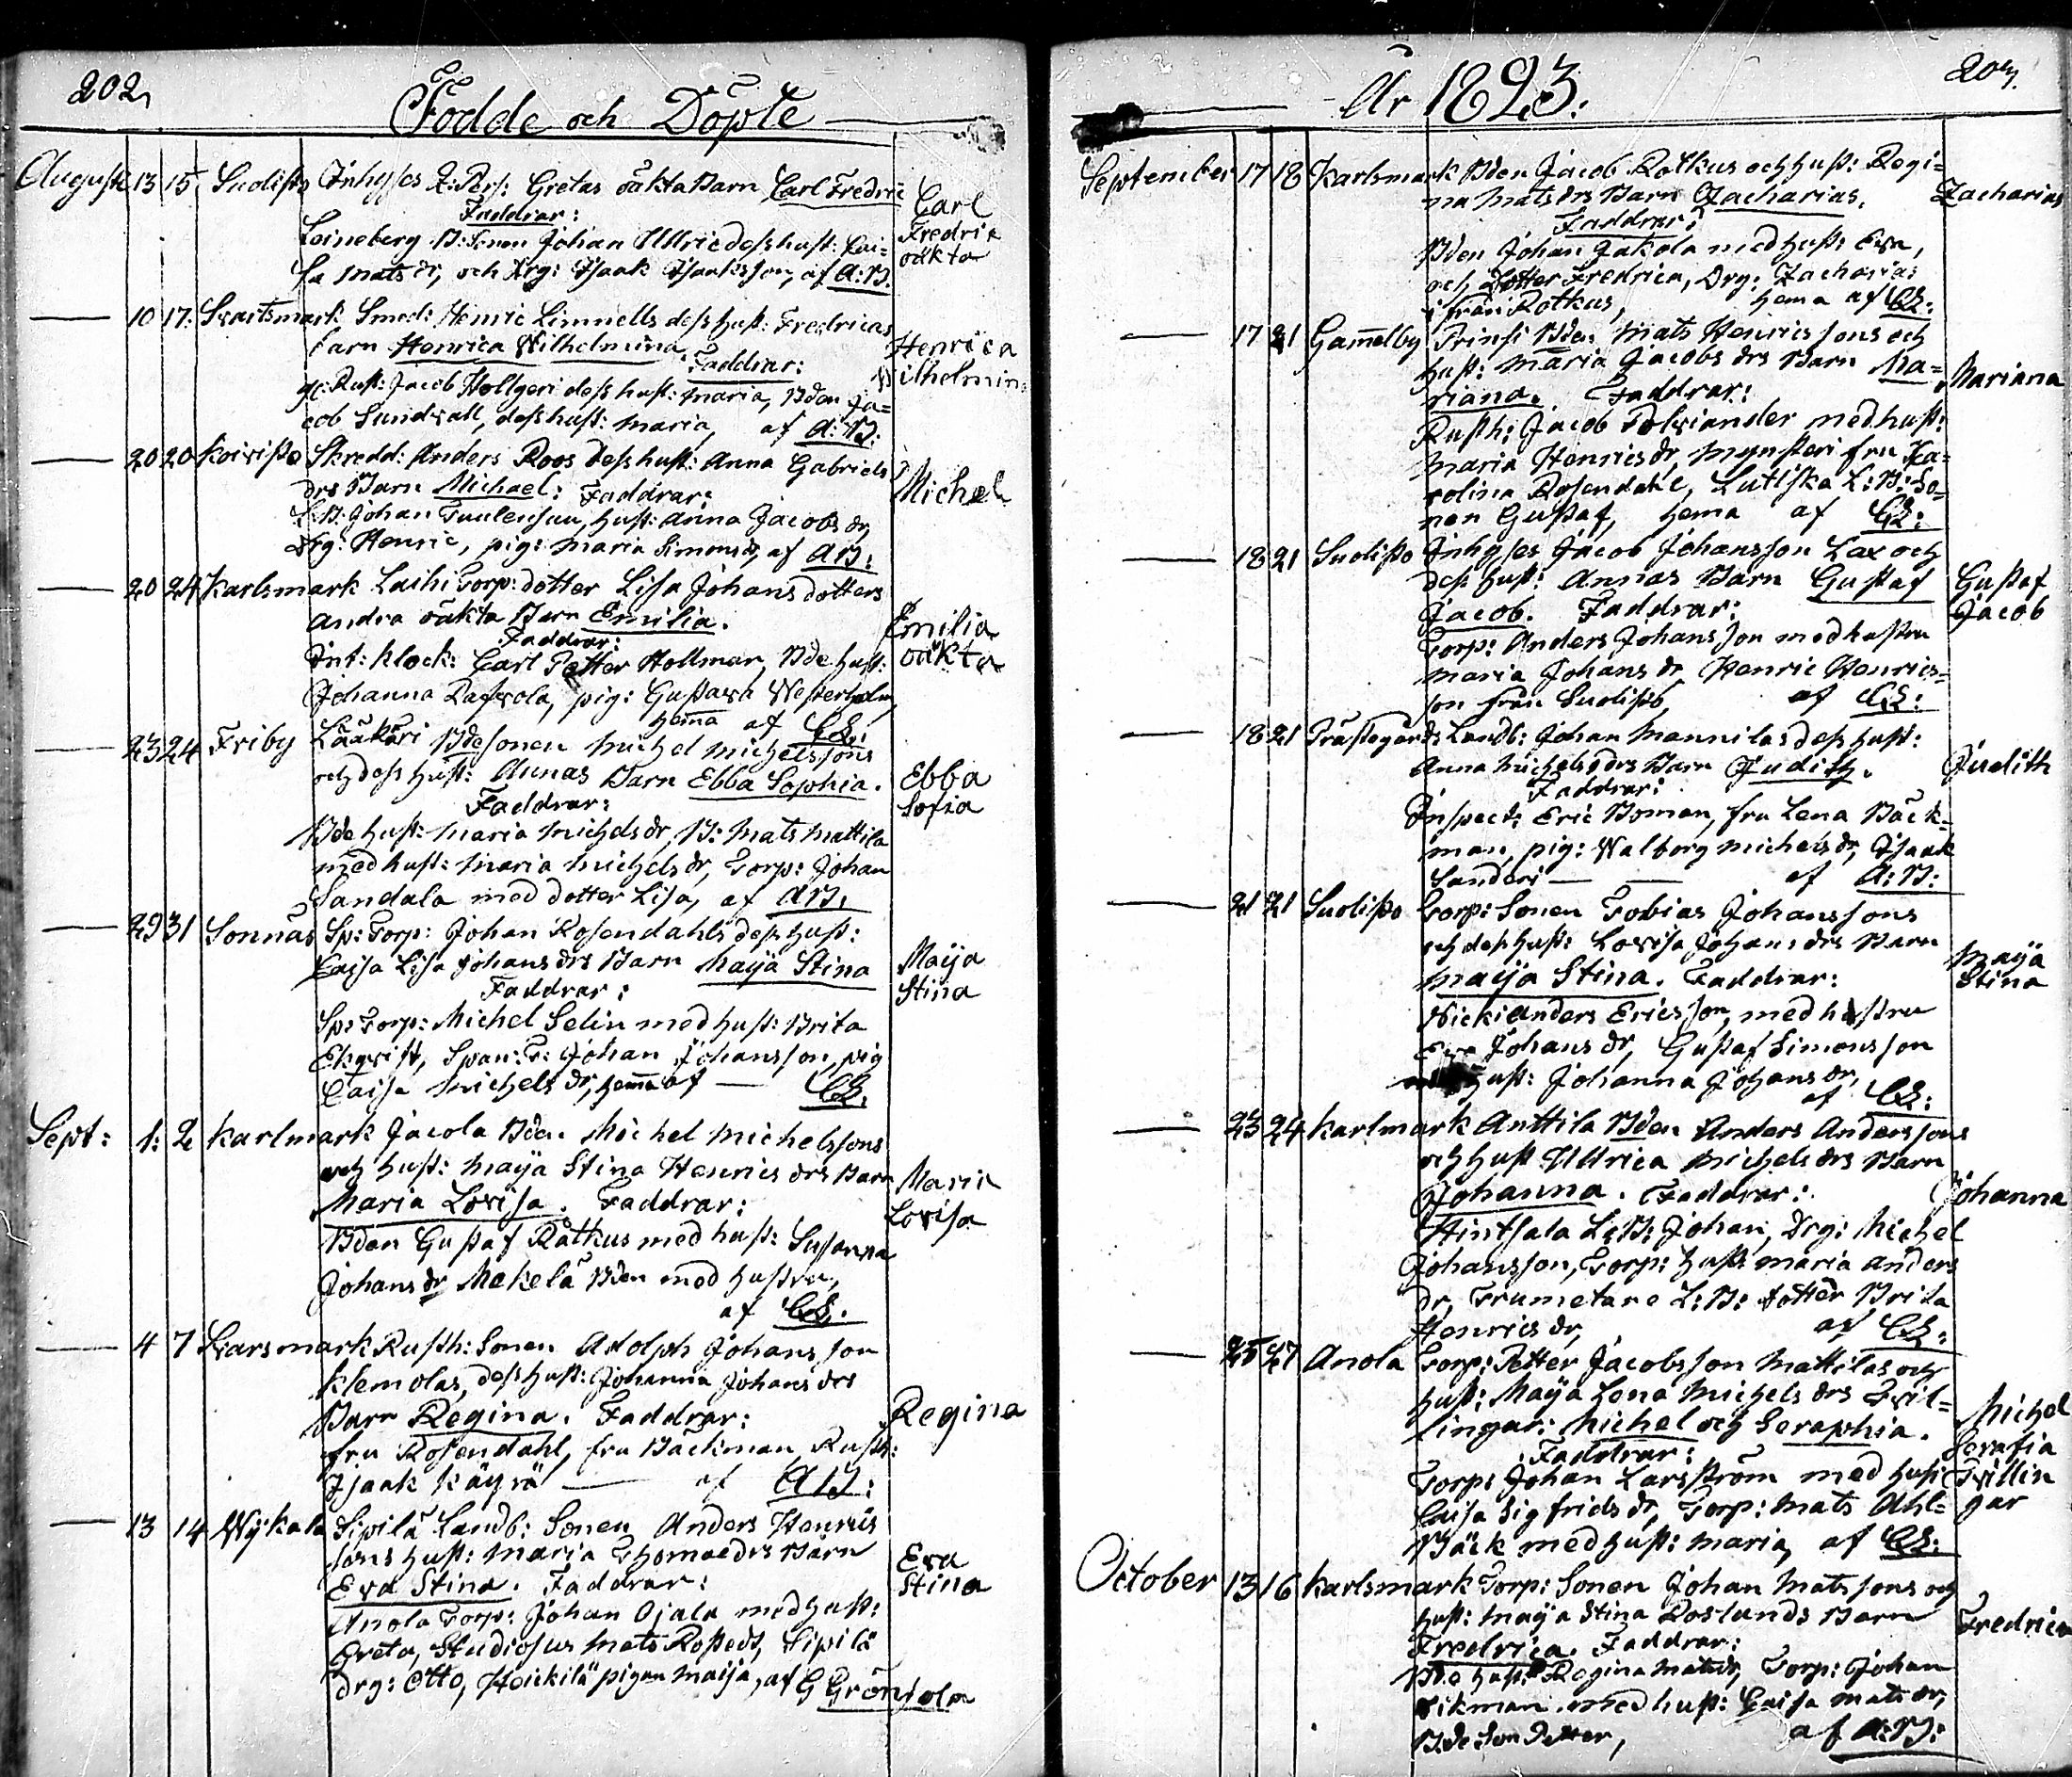 202
Födde och Döpte
August 13 15 Suolisto Inhyses Q: Pers: Gretas oäkta Barn Carl Fredric
Carl
Faddrar:
Fredric
Leineberg B: Sonen Johan Ullric dess hust: Cai=
oäkta
sa Mats dr, och Drg: Isaak Isaksson, af A:B.
10 17: Svartsmark Smed: Henric Limnells dess hust: Fredricas
barn Henrica Wilhelmina
Henrica
Faddrar:
Wilhelmin
Rust: Jacob Hollgeri dess hust: Maria, Bden Ja=
cob Sundvall, dess hust: Maria, af A:B:
20 20 Koivisto Skredd: Anders Roos dess hust: Anna Gabriels
drs Barn Michael: Faddrar:
Michel
Johan Tuulensuu, hust: Anna Jacobs dr,
Drg: Henric, pig: Maria Simons dr, af AB:
20 24 Karlsmark Laihi Torp: dotter Lisa Johans dotters
andra oäkta Barn Emilia.
Emilia
Faddrar:
oäkta
Int: Klock: Carl Petter Hollmar, Bde hust:
Johanna Rafvola, pig: Gustava Westerholm,
hema af CL:
23 24 Friby Lääkäri Bde sonen Michel Michelssons
och dess hust: Annas Barn Ebba Sophia.
Ebba
Faddrar:
Sofia
Bde hust: Maria Michels dr, B: Mats Mattila
med hust: Maria Michels dr, Torp: Johan
Sandala med dotter Lisa, af AB.
29 31 Sonnäs Sp: Torp: Johan Rosendahls dess hust:
Caisa Lisa Johans drs Barn Maija Stina
Maija
Faddrar:
Stina
Sp: Torp: Michel Selin med hust: Brita
Ekqvist, Span: T: Johan Johansson, pig
Caisa Michels dr, hema af — CL.
Sept: 1: 2 Karlmark Jacola Bden Michel Michelssons
och hust: Maija Stina Henrics drs Barn
Maria
Maria Lovisa. Faddrar:
Lovisa
Bden Gustaf Rätkus med hust: Susanna
Johans dr Mekelä Bden med hustru,
af CL:
4 7 Svarsmark Rusth: Sonen Adolph Johansson
Klemolas, dess hust: Johanna Johans drs
Barn Regina. Faddrar:
Regina
fru Rosendahl, fru Bäckman, Rusth:
Isaak Käyrä — af AB:
13 14 Wykala Sipilä Landb: Sonen Anders Henrics
sons hust: Maria Thomae drs Barn
Eva
Eva Stina. Faddrar:
Stina
Anola Torp: Johan Ojala med hust:
Greta, Studiosus Mats Rostedt, Sipilä
drg: Otto, Heickilä pigan Maija, af G Grönholm
År 1823.
203.
September 17 18 Karlsmark Bden Jacob Rotkus och hust: Regi=
na Mats drs Barn Zacharias.
Zacharias
Faddrar:
Bden Johan Jakola med hust: Eva,
och Dotter Fredrica, Drg: Zacharias
ifrån Rotkus, hema af CL:
17 21 Gamelby Prinsi Bden Mats Henricssons och
hust: Maria Jacobs drs Barn Ma=
Mariana
riana. Faddrar:
Rusth: Jacob Polviander med hust:
Maria Henrics dr, Mynsteri fru Ka=
rolina Rosendahl, Lutiska L: B: So=
nen Gustaf, hema af CL:
18 21 Suolisto Inhyses Jacob Johansson Lax och
dess hust: Annas Barn Gustaf
Gustaf
Jacob. Faddrar:
Jacob
Torp: Anders Johansson med hustru
Maria Johans dr, Henric Henrics=
son från Suolisto, af CL:
18 21 Prästegårds Landb: Johan Mannilas dess hust:
Anna Michels drs Barn Judith.
Judith
Faddrar:
Inspect: Eric Boman, fru Lena Bäck=
man, pig: Walborg Michels dr, Isaak
Sanderi — — af A:B:
21 21 Suolisto Torp: Sonen Tobias Johanssons
och dess hust: Lovisa Johans drs Barn
Maija
Maija Stina. Faddrar:
Stina
Nicki Anders Ericsson, med hustru
Eva Johans dr, Gustaf Simonsson
hust: Johanna Johans dr,
af CL:
23 24 Karlmark Anttila Bden Anders Anderssons
och hust Ullrica Michels drs Barn
Johanna. Faddrar:
Johanna
Hintsala L: B: Johan, Drg: Michel
Johansson, Torp: hust: Maria Anders
dr, Trumetare L: B: dotter Brita
Henrics dr, af CL:
25 27 Anola Torp: Petter Jacobsson Mattilas och
hust: Maija Lena Michels drs Tvil=
lingar: Michel och Seraphia.
Michel
Serafia
Faddrar:
Torp: Johan Larsström med hust:
Tvillin
Caisa Sigfrids dr, Torp: Mats Ahl=
gar
Bäck med hust: Maria, af CL:
October 13 16 Karlsmark Torp: Sonen Johan Matssons och
hust: Maija Stina Roslands Barn
Fredrica. Faddrar:
Fredrica
Bde hust: Regina Mats dr, Torp: Johan
Wikman med hust: Caisa Mats dr,
Bde Son Petter, af A:B: